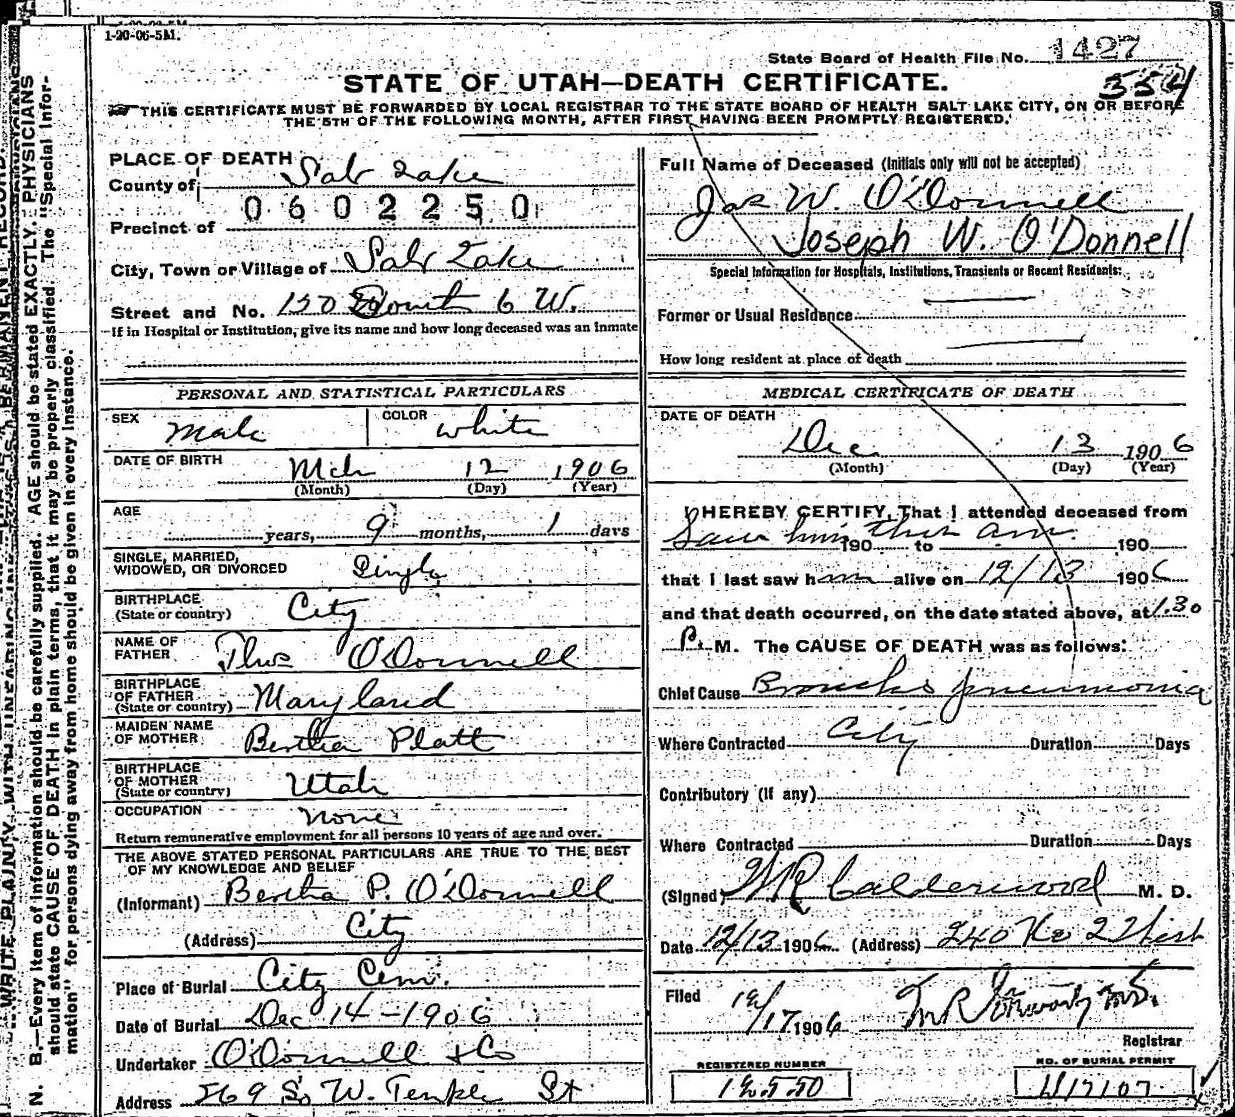 1-20-06-5M.
State Board of Health File No. 1427
354
STATE OF UTAH—DEATH CERTIFICATE.
THIS CERTIFICATE MUST BE FORWARDED BY LOCAL REGISTRAR TO THE STATE BOARD OF HEALTH SALT LAKE CITY, ON OR BEFORE
THE 5TH OF THE FOLLOWING MONTH, AFTER FIRST HAVING BEEN PROMPTLY REGISTERED.
PLACE OF DEATH
County of Salt Lake
0602250
Precinct of
City, Town or Village of Salt Lake
Street and No. 150 South 6 W.
If in Hospital or Institution, give its name and how long deceased was an inmate
PERSONAL AND STATISTICAL PARTICULARS
SEX Male COLOR White
DATE OF BIRTH Mch 12 1906
(Month) (Day) (Year)
AGE years, 9 months, 1 days
SINGLE, MARRIED,
WIDOWED, OR DIVORCED Single
BIRTHPLACE
(State or country) City
NAME OF
FATHER Thos O'Donnell
BIRTHPLACE
OF FATHER
(State or country) Maryland
MAIDEN NAME
OF MOTHER Bertha Platt
BIRTHPLACE
OF MOTHER
(State or country) Utah
OCCUPATION None
Return remunerative employment for all persons 10 years of age and over.
THE ABOVE STATED PERSONAL PARTICULARS ARE TRUE TO THE BEST
OF MY KNOWLEDGE AND BELIEF
(Informant) Bertha P. O'Donnell
(Address) City
Place of Burial City Cem.
Date of Burial Dec 14-1906
Undertaker O'Donnell & Co
Address 369 So W. Temple St
Full Name of Deceased (Initials only will not be accepted)
Jos W. O'Donnell
Joseph W. O'Donnell
Special Information for Hospitals, Institutions, Transients or Recent Residents:
Former or Usual Residence
How long resident at place of death
MEDICAL CERTIFICATE OF DEATH
DATE OF DEATH
Dec 13 1906
(Month) (Day) (Year)
I HEREBY CERTIFY, That I attended deceased from
Saw him this am. 190 to 190
that I last saw him alive on 12/13 1906
and that death occurred, on the date stated above, at 1.30
P. M. The CAUSE OF DEATH was as follows:
Chief Cause Broncho pneumonia
Where Contracted City Duration Days
Contributory (if any)
Where Contracted Duration Days
(Signed) W R Calderwood M. D.
Date 12/13 1906 (Address) 240
Filed 12/17 1906
Registrar
REGISTERED NUMBER
NO. OF BURIAL PERMIT
12550
N. B.—Every item of information should be carefully supplied. AGE should be stated EXACTLY. PHYSICIANS
should state CAUSE OF DEATH in plain terms, that it may be properly classified. The "Special Infor-
mation" for persons dying away from home should be given in every instance.